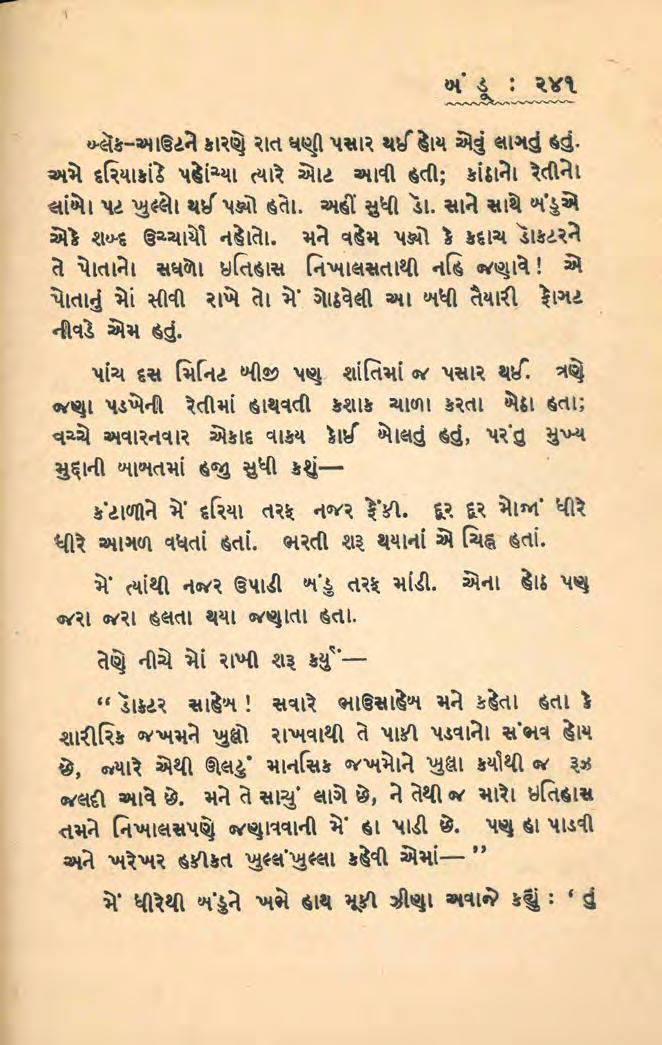 બંડૂ : ૨૪૧
બ્લૅક-આઉટને કારણે રાત ઘણી પસાર થઈ હોય એવું લાગતું હતું.
અમે દરિયાકાંઠે પહોંચ્યા ત્યારે ઓટ આવી હતી; કાંઠાનો રેતીનો
લાંબો પટ ખુલ્લો થઈ પડ્યો હતો. અહીં સુધી ડૉ. સાને સાથે બંડુએ
એકે શબ્દ ઉચ્ચાર્યો નહોતો. મને વહેમ પડ્યો કે કદાચ ડૉકટરને
તે પોતાનો સઘળો ઇતિહાસ નિખાલસતાથી નહિ જણાવે! એ
પોતાનું મોં સીવી રાખે તો મેં ગોઠવેલી આ બધી તૈયારી ફોગટ
નીવડે એમ હતું.
પાંચ દસ મિનિટ બીજી પણ શાંતિમાં જ પસાર થઈ. ત્રણે
જણા પડખેની રેતીમાં હાથવતી કશાક ચાળા કરતા બેઠા હતા;
વચ્ચે અવારનવાર એકાદ વાકય કોઈ બોલતું હતું, પરંતુ મુખ્ય
મુદ્દાની બાબતમાં હજુ સુધી કશું—
કંટાળીને મેં દરિયા તરફ નજર ફેંકી. દૂર દૂર મોજાં ધીરે
ધીરે આગળ વધતાં હતાં. ભરતી શરૂ થયાનાં એ ચિહ્ન હતાં.
મેં ત્યાંથી નજર ઉપાડી બંડુ તરફ માંડી. એના હોઠ પણ
જરા જરા હલતા થયા જણાતા હતા.
તેણે નીચે મોં રાખી શરૂ કર્યું—
“ ડૉકટર સાહેબ! સવારે ભાઉસાહેબ મને કહેતા હતા કે
શારીરિક જખમને ખુલ્લો રાખવાથી તે પાકી પડવાનો સંભવ હોય
છે, જ્યારે એથી ઊલટું માનસિક જખમોને ખુલ્લા કર્યાથી જ રૂઝ
જલદી આવે છે. મને તે સાચું લાગે છે, ને તેથી જ મારો ઇતિહાસ
તમને નિખાલસપણે જણાવવાની મેં હા પાડી છે. પણ હા પાડવી
અને ખરેખર હકીકત ખુલ્લંખુલ્લા કહેવી એમાં— ”
મેં ધીરેથી બંડુને ખભે હાથ મૂકી ઝીણા અવાજે કહ્યું : ‘ તું